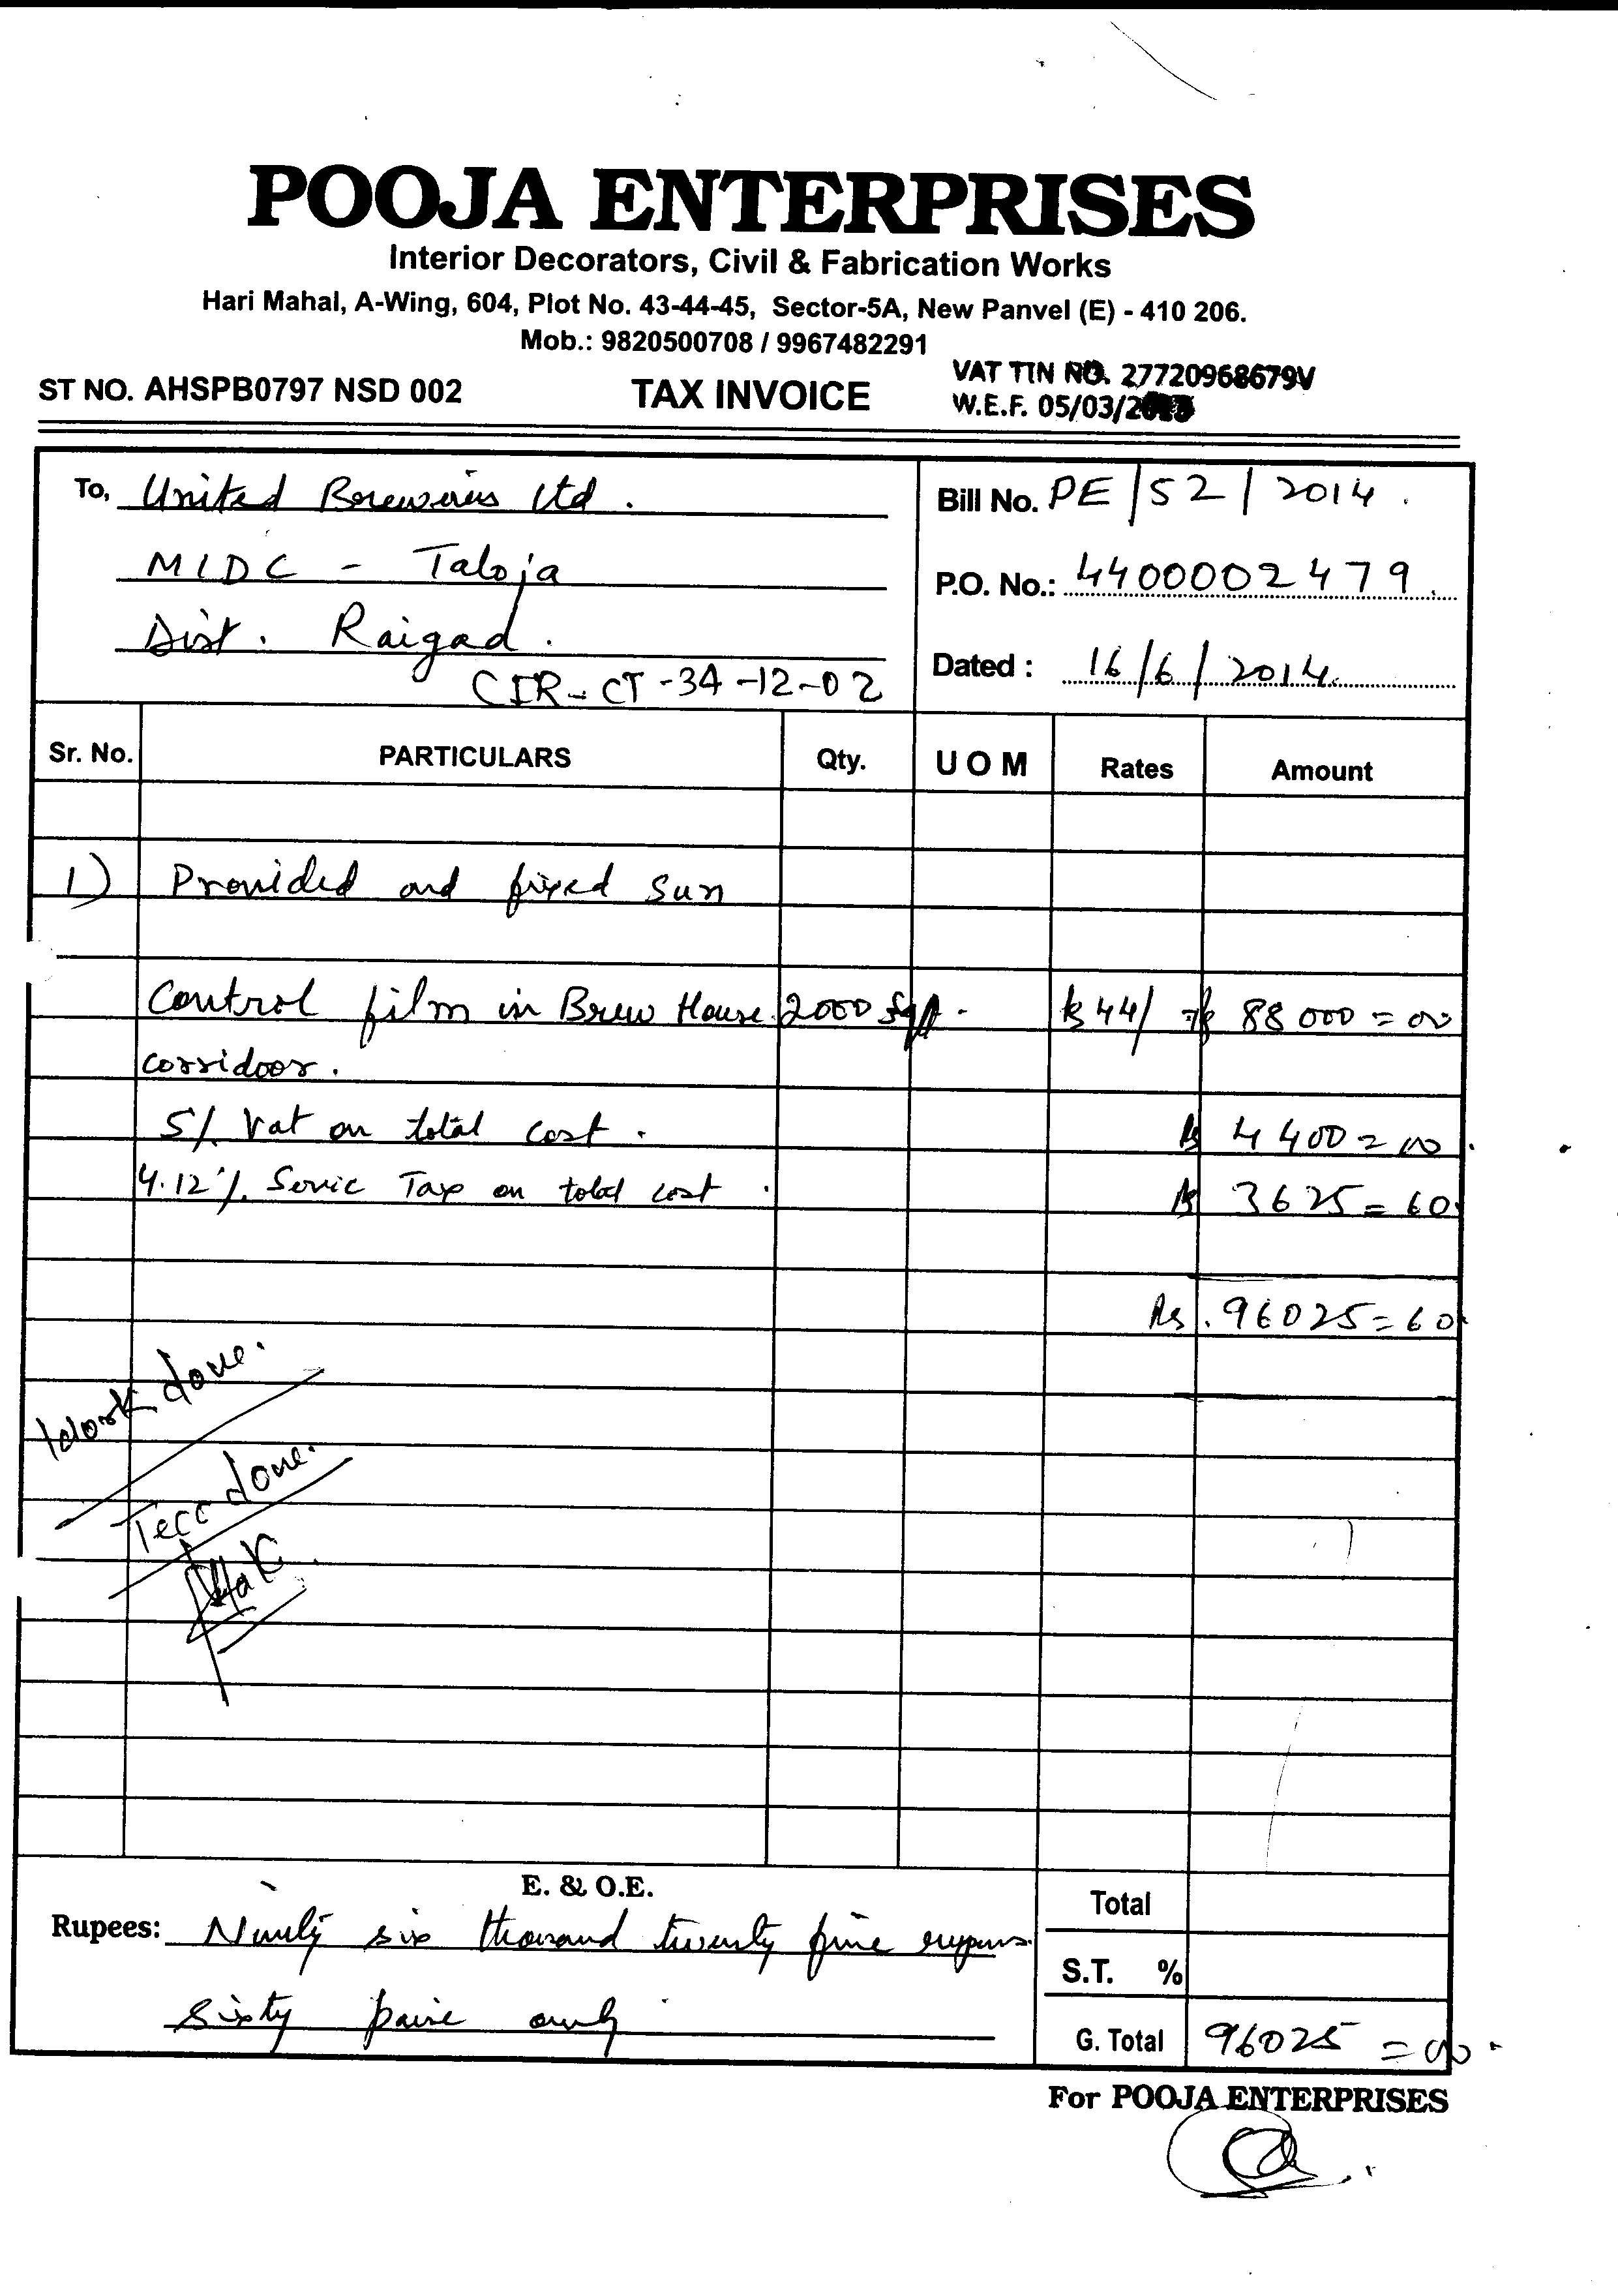 POOJA ENTERPRISES
Interior Decorators, Civil & Fabrication Works
Hari Mahal, A-Wing, 604, Plot No. 43-44-45, Sector-5A, New Panvel (E) - 410 206.
Mob.: 9820500708 / 9967482291
ST NO. AHSPB0797 NSD 002 TAX INVOICE VAT TIN NO. 27720968679V
W.E.F. 05/03/
To, United Breweries Ltd.
MIDC - Taloja
Dist. Raigad.
CIR-CT-34-12-02
Bill No. PE/52/2014.
P.O. No.: 4400002479.
Dated : 16/6/2014.
Sr. No. PARTICULARS Qty. U O M Rates Amount
1) Provided and fixed Sun
Control film in Brew House. 2000 Sqft. Rs 44/ Rs 88000=00
corridoor.
5% Vat on total cost. Rs 4400=00.
4.12%. Servic Tax on total cost. Rs 3625=60.
Rs. 96025=60.
Work done.
Tecc done.
E. & O.E.
Rupees: Ninety six thousand twenty five rupees.
Sixty paise only
Total
S.T. %
G. Total 96025=00.
For POOJA ENTERPRISES